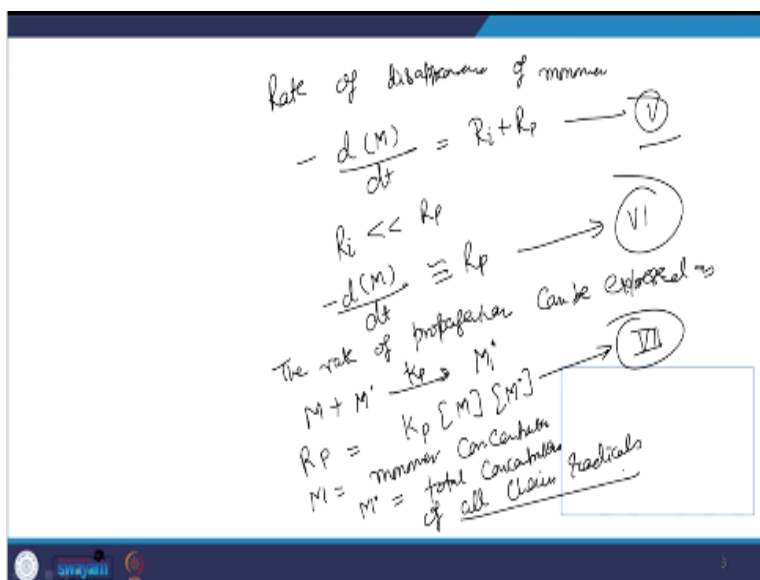 Rate of disappearance of monomer
- d(M)/dt = Ri + Rp → V
Ri << Rp
- d(M)/dt ≅ Rp → VI
The rate of propagation can be expressed as
M + M• →Kp M1•
Rp = Kp [M] [M•] → VII
M = monomer concentration
M• = total concentration
of all chain radicals
swayam
3